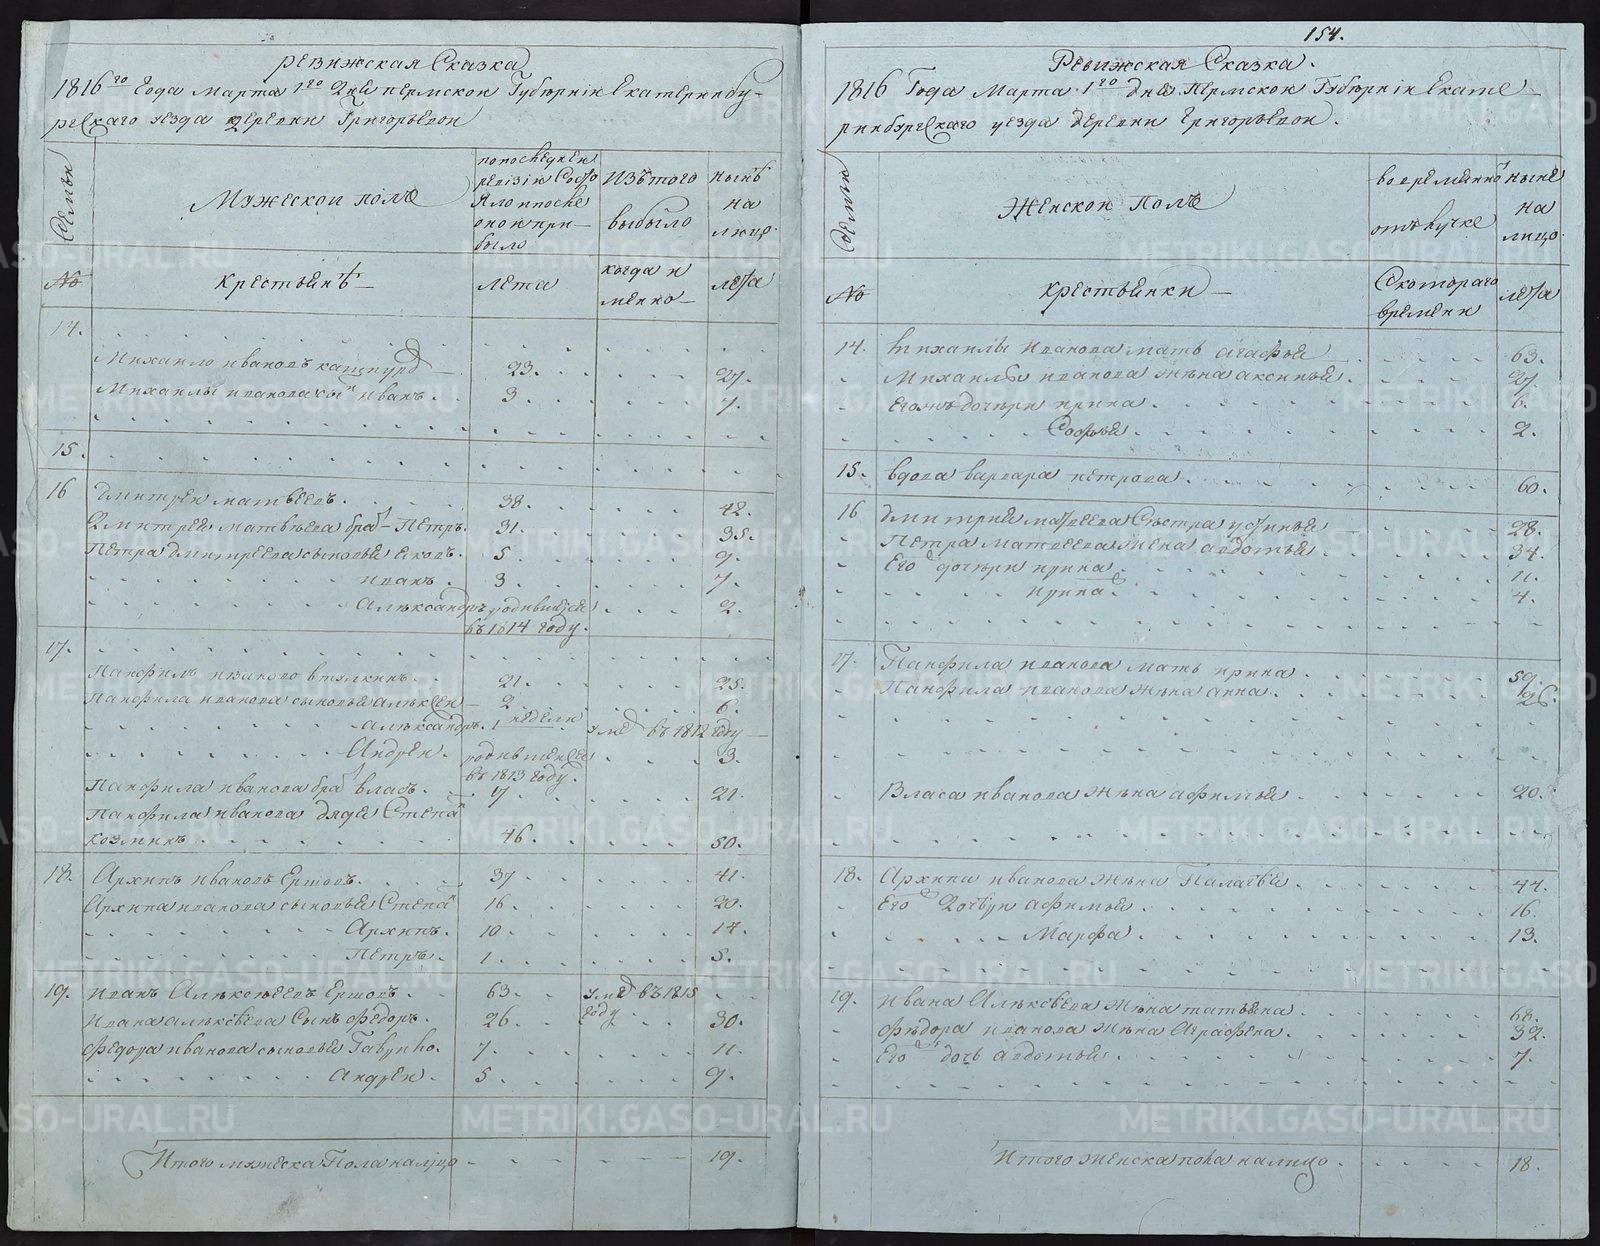 154.
Ревижская Сказка
1816го Года Марта 1го Дня пермской Губернiи Екатеринбу-
ргскаго уезда деревни Григорьевой
Семьи
Мужеской полъ
по последней
ревизiи Состо
яло и после
оной при-
было
Изътого
выбыло
нынѣ
на
лицо
№
Крестьянъ
лета
когда и
менно
лета
14.
Михайло ивановъ
23. 27.
Михайлы иванова сынъ иванъ. 3. 7.
15.
16 Дмитрей матвеевъ. 38. 42.
Дмитрея матвеева братъ Петръ. 31. 35.
Петра дмитреева сыновья 5. 9.
иванъ. 3. 7.
Александръ родившейся 2.
въ 1814 году.
17.
Панфилъ ивановъ 21. 25.
Панфила иванова сыновья алексей 2. 6.
александръ. 1 недели умре въ 1812 году
Андрей. родившейся 3.
въ 1813 году.
Панфила иванова братъ власъ. 17. 21.
Панфила иванова дядя Степанъ
козминъ. 46. 50.
18. Архипъ ивановъ Ершовъ. 37. 41.
Архипа иванова сыновья Степанъ 16. 20.
Архипъ. 10. 14.
Петръ. 1. 5.
19. Иванъ Алексеевъ Ершовъ. 63. умре въ 1815
году
Ивана алексеева Сынъ Федоръ. 26. 30.
Федора иванова сыновья Гаврило. 7. 11.
Андрей. 5. 9.
Итого мужеска Пола налицо 19.
Ревижская Сказка.
1816 Года Марта 1го дня Пермской Губернiи Екате-
ринбургскаго уезда деревни Григорьевой.
Семьи
Женской Полъ
вовременной
отълучке
ныне
на
лицо
№
крестьянки
Скотораго
времени
лета
14. Михайлы Иванова мать агафья 63.
Михайлы иванова жена аксинья. 27.
Егожъ дочери ирина. 6.
Софья. 2.
15. вдова варвара петрова. 60.
16 Дмитрия матвеева Сестра устинья 28.
Петра матвеева жена авдотья. 34.
Его дочери ирина. 11.
ирина. 4.
17. Панфила иванова мать ирина. 59.
Панфила иванова жена анна. 26.
Власа иванова жена афимья. 20.
18. Архипа иванова жена Палагея. 44.
Его дочери афимья. 16.
Марфа. 13.
19. Ивана Алексеева жена татьяна. 68.
Федора иванова жена Аграфена. 32.
Его дочь авдотья. 7.
Итого женска пола налицо. 18.
METRIKI.GASO-URAL.RU